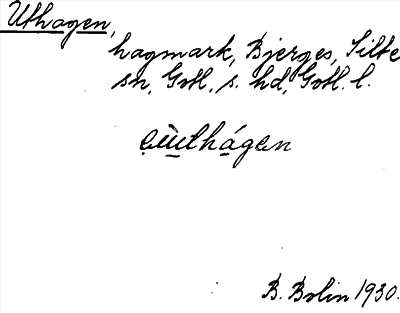 Uthagen,
hagmark, Bjerges, Silte
sn, Gotl. s. hd, Gotl. l.
eùthágen
B. Bolin 1930.